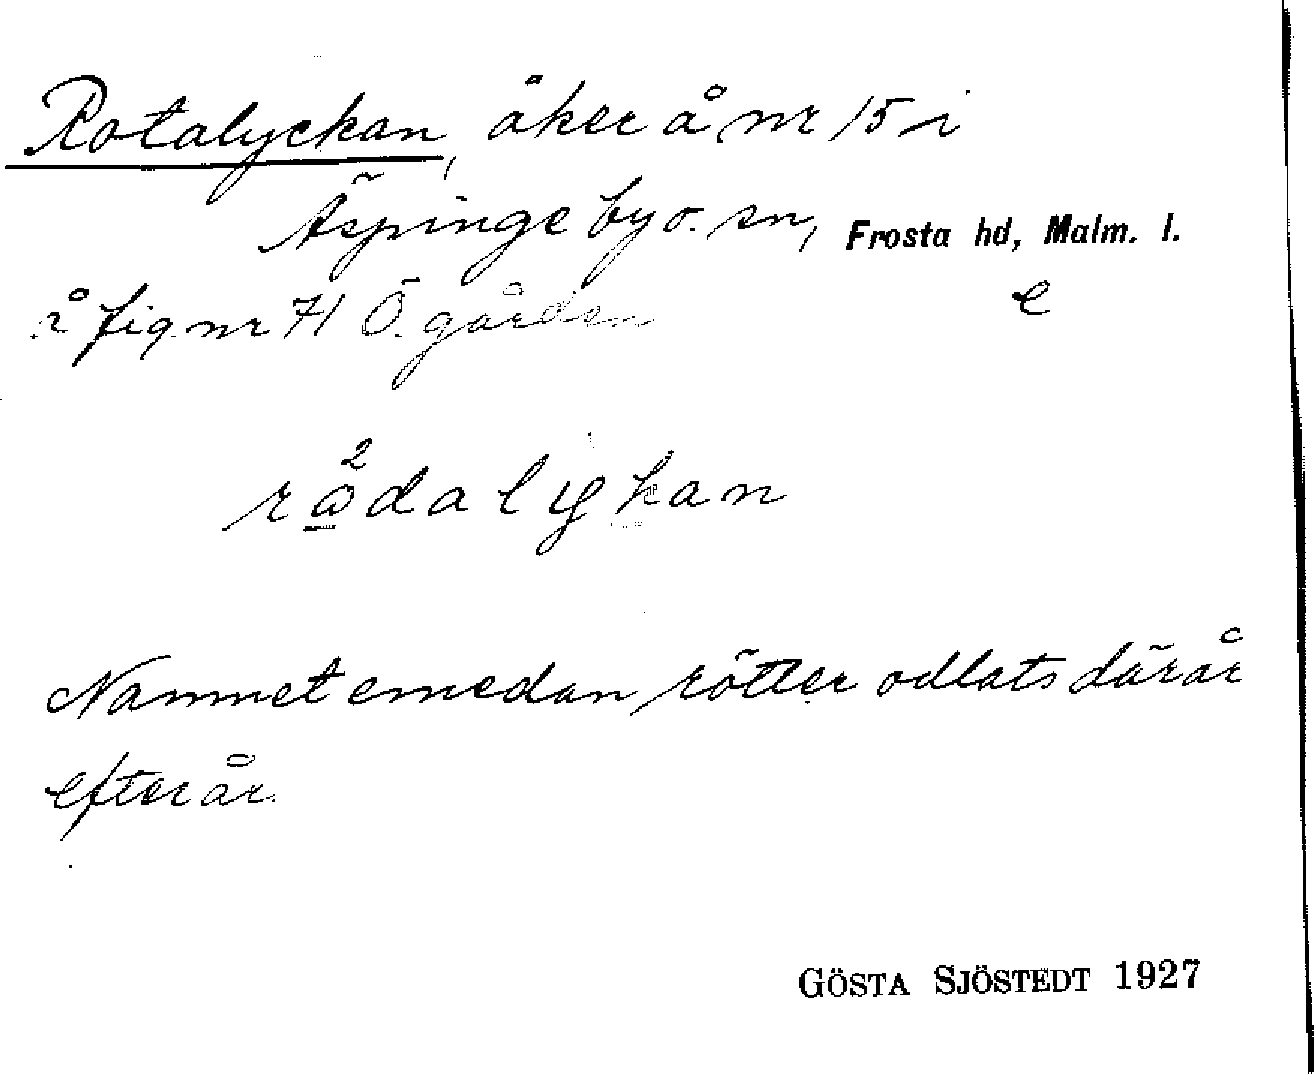 Rotalyckan, åker å nr 15 i
Äspinge by o. sn, Frosta hd, Malm. l.
å fig. nr 71 Ö. gården e
rådalykan
Namnet emedan rötter odlats där år
efter år.
GÖSTA SJÖSTEDT 1927